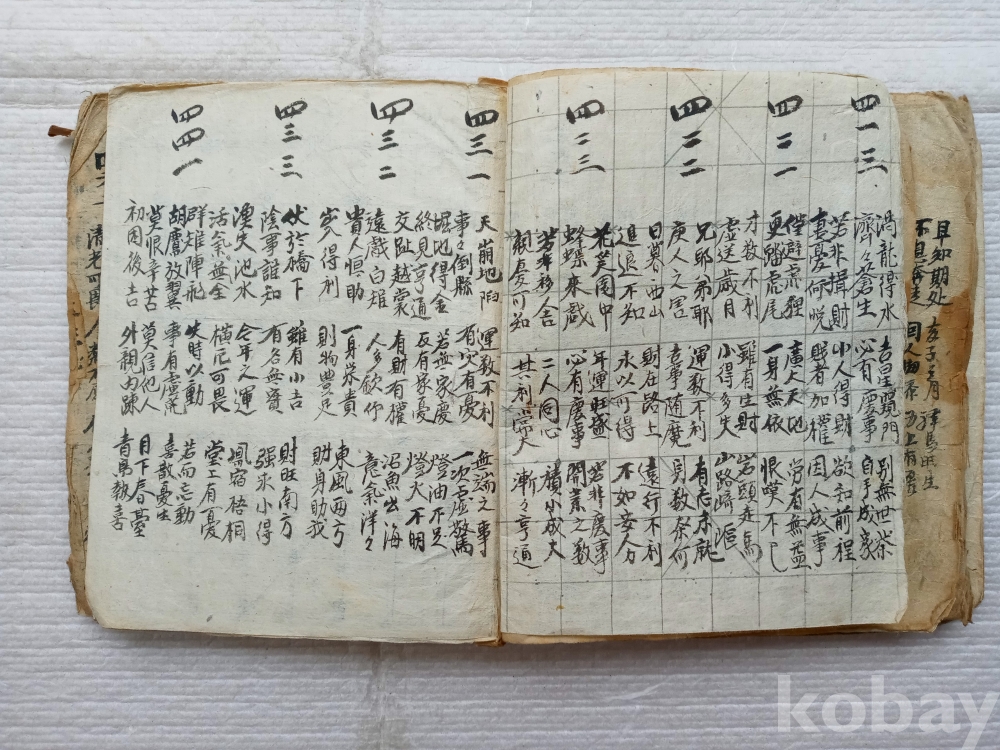 早知期处
四一三
渴龍得水 吉星照門 別無世榮
濟々蒼生 必有慶事 自手成家
若非損財 小人得財 欲知前程
喜憂何悅 賜者加權 因人成事
四二一
僅避虎狸 廣大天地 労有無益
更踏虎尾 一身無依 恨嘆不已
才数不利 雖有生財 岩頭走馬
虛送歲月 小得多失 山路崎嶇
四二二
兄耶弟耶 運數不利 有志未就
庚人之害 意事随魔 身数奈何
日暮西山 財在路上 遠行不利
進退不知 求以可得 不如安分
四二三
花笑園中 年運旺盛 若非慶事
蜂蝶來戯 必有慶事 開業之數
若非移舍 二人同心 積小成大
親憂可知 其利常大 漸々亨通
四三一
天崩地陷 運数不利 無端之事
事々倒縣 有灾有憂 一次虛驚
堀地得金 若無家慶 燈油不足
終見亨通 反有家憂 燈火不明
四三二
交趾越裳 有財有權 沼魚出海
遠戯白雉 人多欽仰 意氣洋々
貴人恒助 一身榮貴 東風西方
出入得利 則物豊足 財身助我
四三三
伏於橋下 雖有小吉 財旺南方
陰事誰知 有名無實 强求小得
漁失池水 今年之運 鳳宿梧桐
活氣無全 橫厄可畏 堂上有憂
四四一
群雉陣飛 失時以動 若而忘動
胡鷹放翼 事有虛荒 喜散憂生
莫恨辛苦 莫信他人 月下春臺
初困後吉 外親內踈 青鳥報喜
kobay